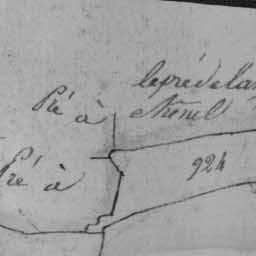 le pré de la
Pré à
Pré à
924